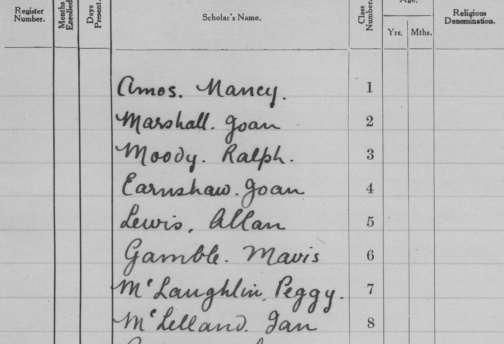 Register Number.
Months Enrolled.
Days Present.
Scholar's Name.
Class Number.
Age.
Yrs.
Mths.
Religious Denomination.
Amos. Nancy. 1
Marshall. Joan 2
Moody. Ralph. 3
Earnshaw. Joan 4
Lewis, Allan 5
Gamble. Mavis 6
McLaughlin. Peggy. 7
McLelland. Ian 8